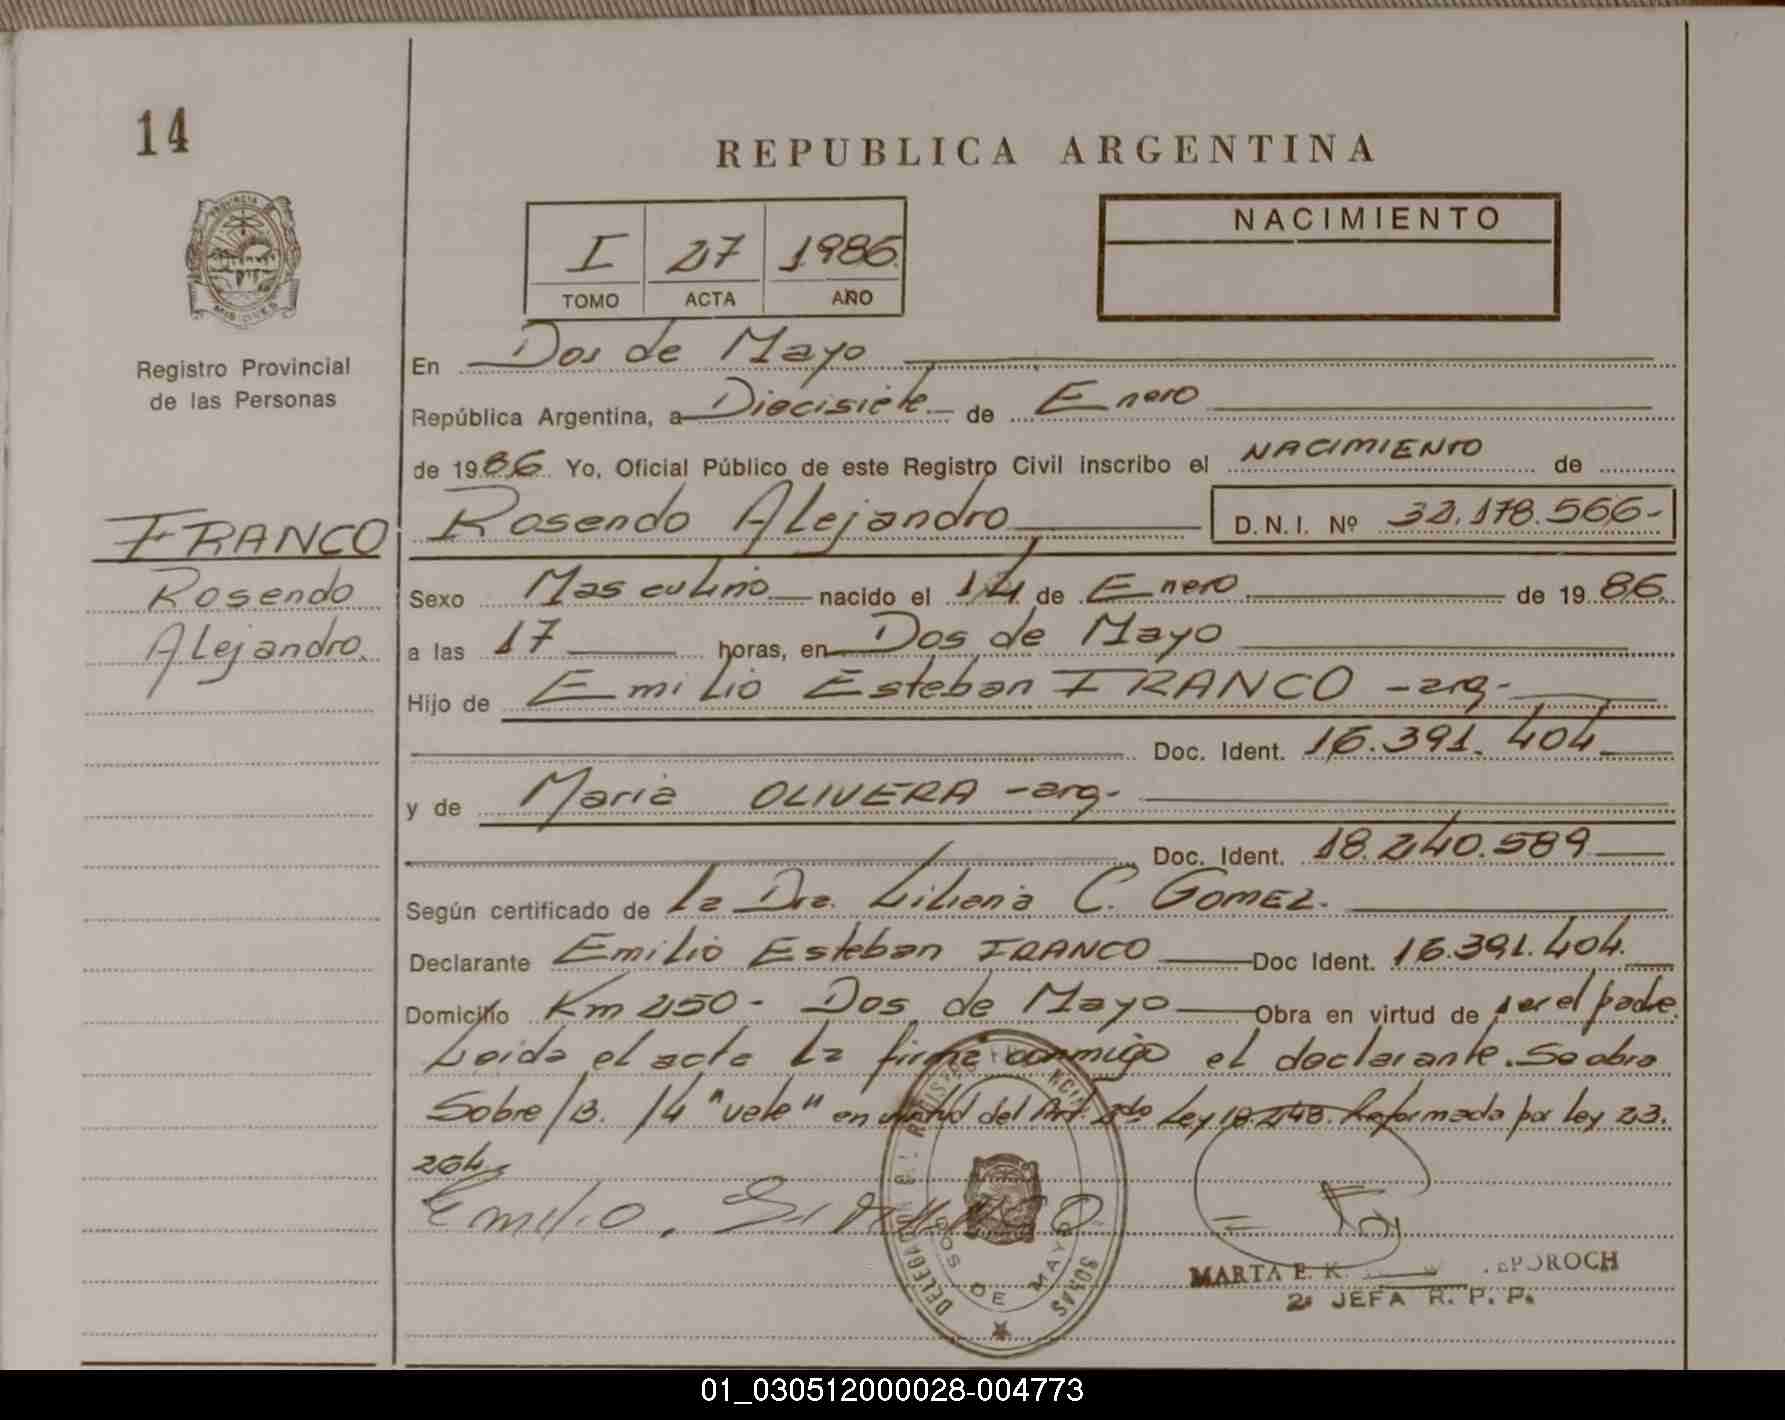 14
REPUBLICA ARGENTINA
NACIMIENTO
I 27 1986
TOMO ACTA AÑO
PROVINCIA
MISIONES
Registro Provincial
de las Personas
En Dos de Mayo
República Argentina, a Diecisiete de Enero
de 1986 Yo, Oficial Público de este Registro Civil inscribo el NACIMIENTO de
FRANCO
Rosendo
Alejandro
Rosendo Alejandro D.N.I. Nº 32.178.566-
Sexo Masculino nacido el 14 de Enero de 1986
a las 17 horas, en Dos de Mayo
Hijo de Emilio Esteban FRANCO -arg-
Doc. Ident. 16.391.404
y de Maria OLIVERA -arg-
Doc. Ident. 18.240.589
Según certificado de la Dra. Liliana C. GOMEZ.
Declarante Emilio Esteban FRANCO Doc Ident. 16.391.404.
Domicilio Km 250- Dos de Mayo Obra en virtud de ser el padre.
Leida el acta la firma conmigo el declarante. So
Sobre/B. /4 "vale" en virtud del Art. 2do Ley 18.248. Reformada por Ley 23.
264
Emilio.
DOS DE MAYO
MARTA E. K.
2a JEFA R. P. P.
01_030512000028-004773